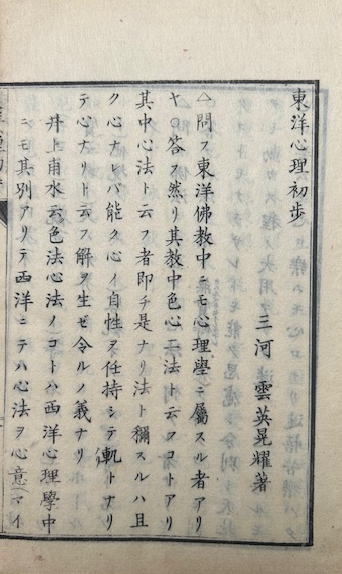 東洋心理初歩
三河雲英晃耀著
△問フ東洋佛教中ニモ心理學ニ屬スル者アリ
ヤ○答フ然リ其教中色心二法ト云フコトアリ
其中心法ト云フ者即チ是ナリ法ト稱スルハ且
ク心ナレバ能ク心ノ自性ヲ任持シテ軌トナリ
テ心ナリト云フ解ヲ生ゼ令ルノ義ナリ
井上甫水云色法心法ノコトハ西洋心理學中
ニモ其別アリテ西洋ニテハ心法ヲ心意（マイ